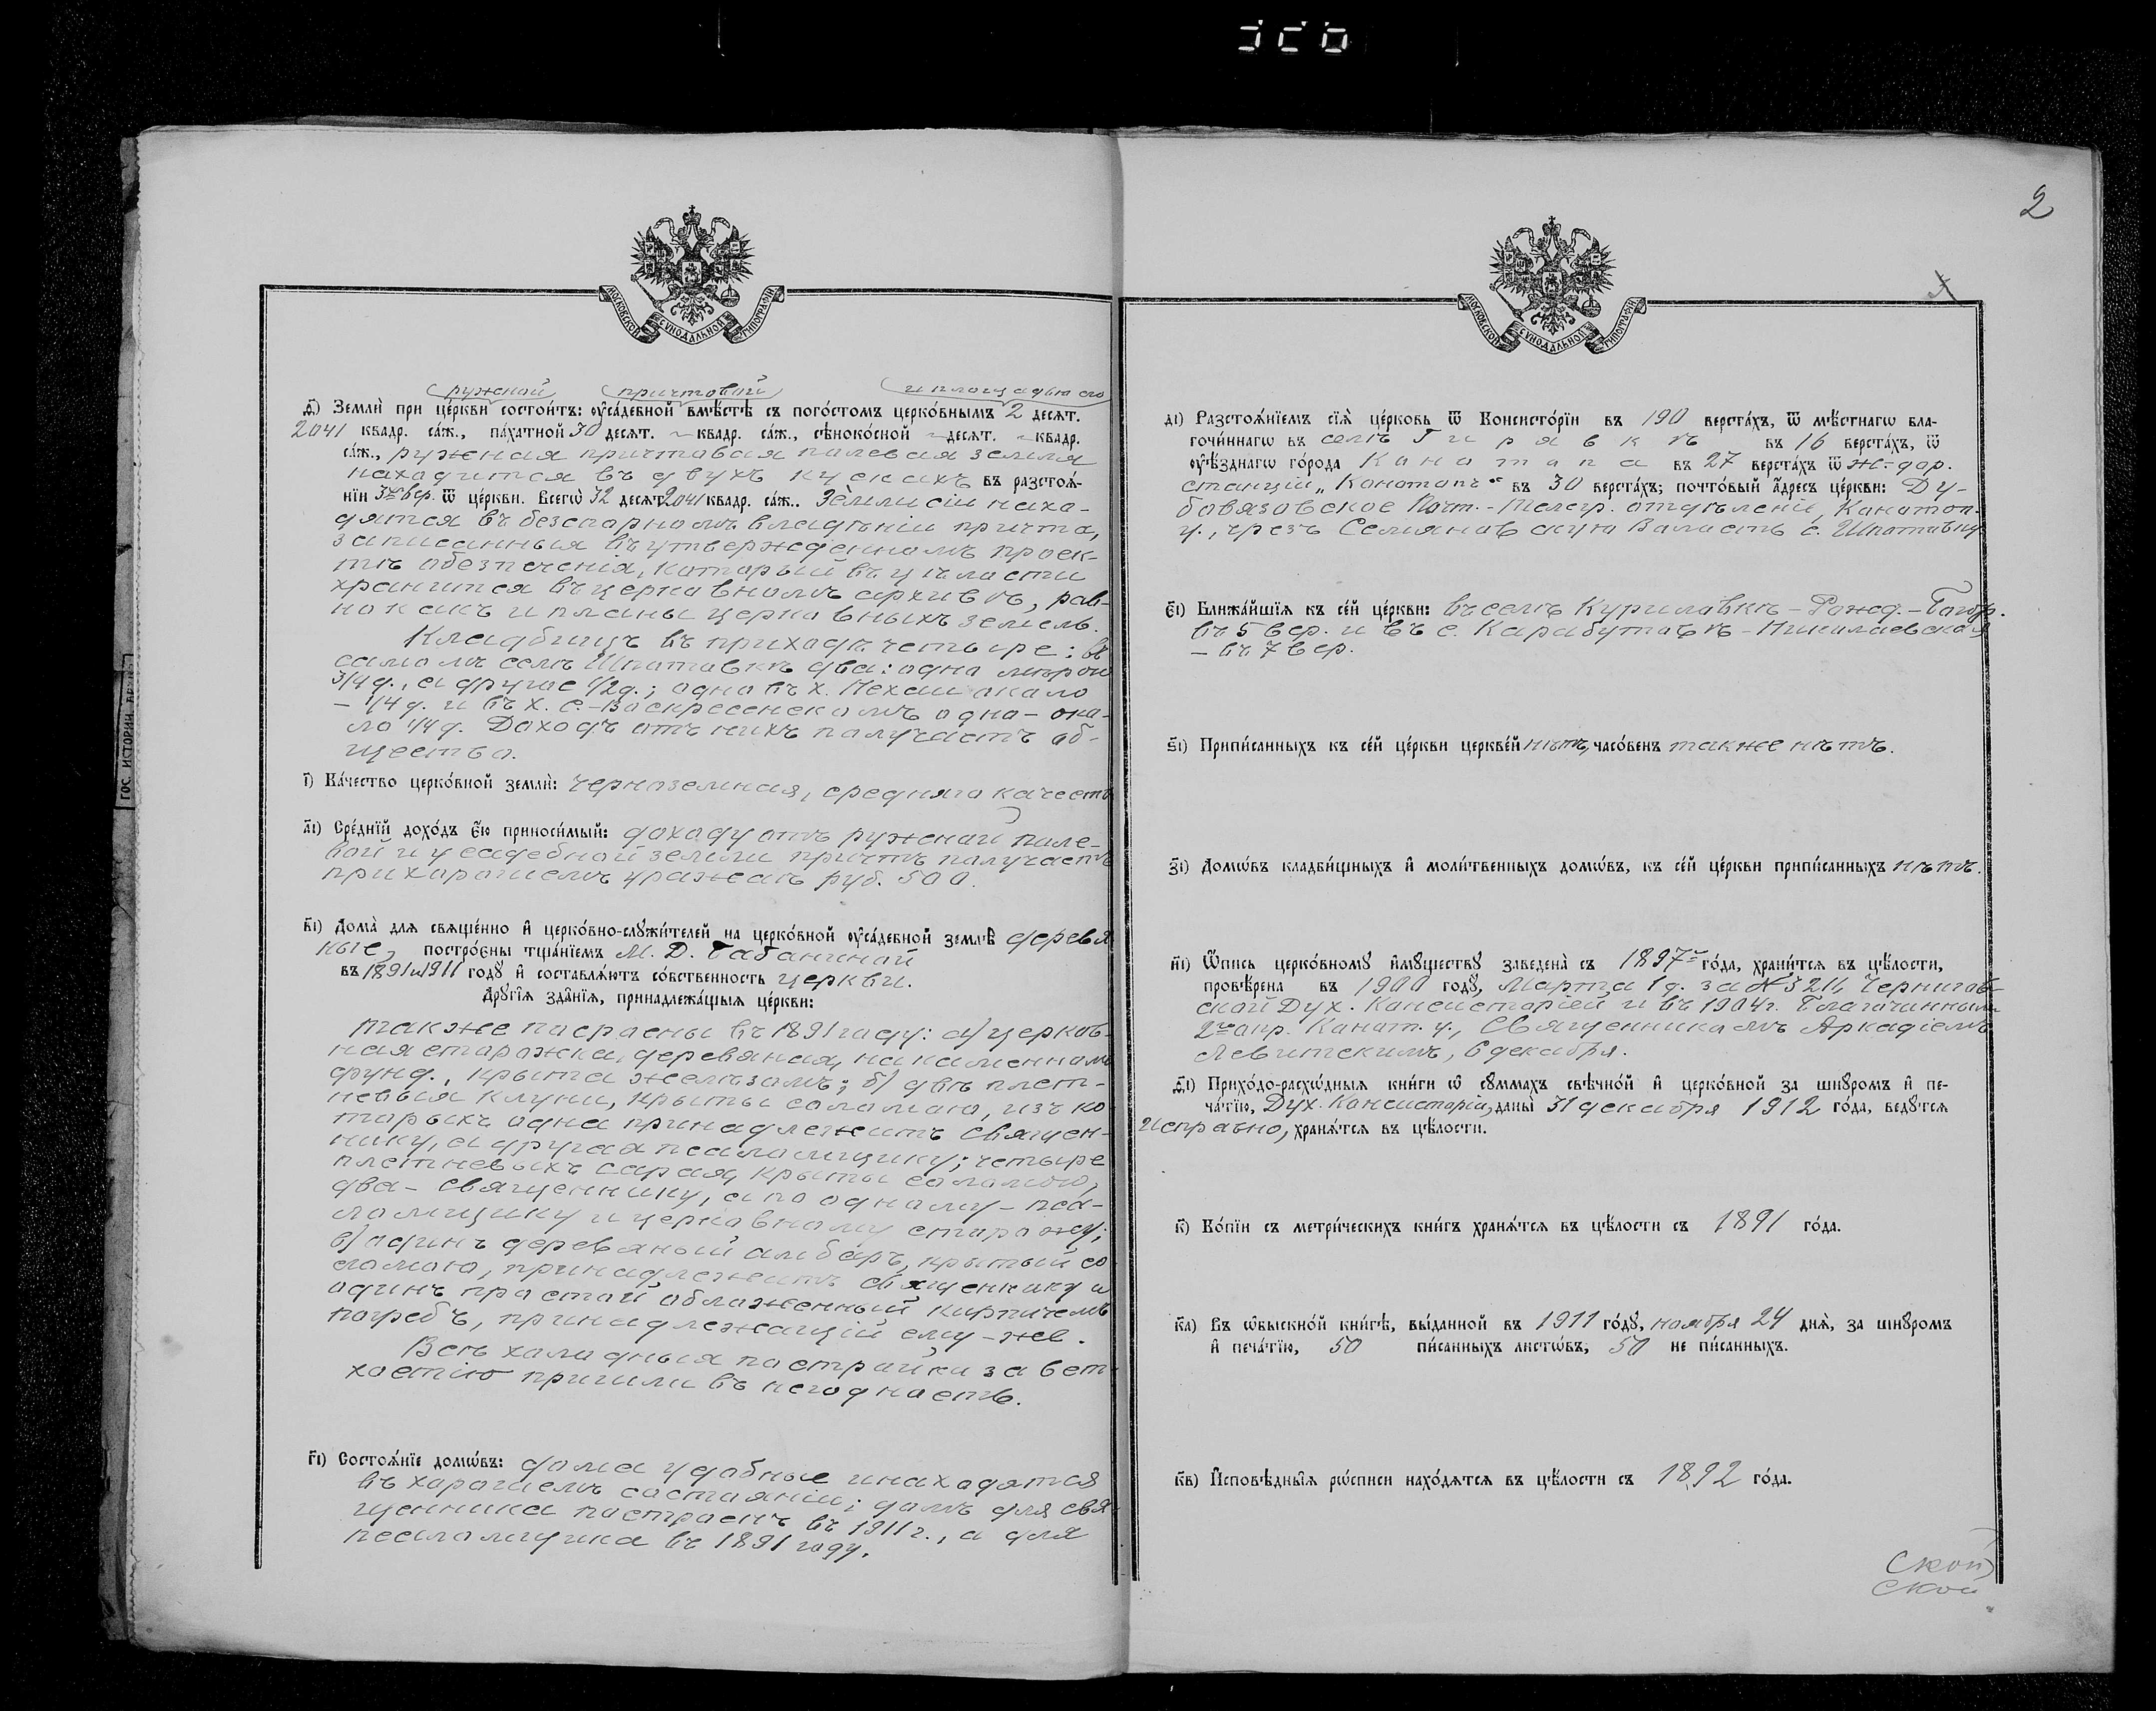 2
МОСКОВСКОЙ СѴНОДАЛЬНОЙ ТИПОГРАФІИ
(ружной) (притовой) (и площадью его
ѳ҃) Землѝ при цéркви состои́тъ: ᲂу҆сáдебной вмѣ́стѣ съ погóстомъ церкóвнымъ 2 десят.
2041 квадр. сáж., пáхатной 30 десят. ~ квадр. сáж., сѣнокóсной ~ десят. ~ квадр.
сáж., ружная притовая полевая земля
находится въ двухъ кускахъ въ разстоѧ́-
нїи 3хъ вер. ѿ цéркви. Всегѡ̀ 32 десят. 2041 квадр. сáж.. Земли сіи нахо-
дятся въ безспорномъ владѣніи причта,
записанныя въ утвержденномъ проек-
тѣ обезпеченія, который въ цѣлости
хранится въ церковномъ архивѣ, рав-
но какъ и планы церковныхъ земель.
Кладбищъ въ приходѣ четыре: въ
самомъ селѣ Шпотовкѣ два: одно мѣрою
3/4 д., а другое 1/2 д.; одно въ х. Пехам около
– 1/4 д. и въ х. С.-Воскресенскомъ одно – око-
ло 1/4 д. Доходъ отъ нихъ получаетъ об-
щество.
і҃) Кáчество церкóвной землѝ: черноземная, средняго качеств
а҃і) Срéднїй дохóдъ є҆́ю приноси́мый: доходу отъ ружной поле-
вой и усадебной земли причтъ получаетъ
при хорошемъ урожаѣ руб. 500.
в҃і) Домà для свящéнно и҆ церкóвно-служи́телей на церкóвной ᲂу҆сáдебной землѣ̀ деревя
ные, пострóєны тщáнїемъ М. Д. Бабаниной
въ 1891 и 1911 годꙋ̀ и҆ составлѧ́ютъ сóбственность церкви.
Дрꙋгі̂ѧ здâнїѧ, принадлежáщыѧ цéркви:
Также построены въ 1891 году: а) церков-
ная сторожка деревяная, на каменномъ
фунд., крыта желѣзомъ; б) двѣ плет-
невыя клуни, крыты соломою, изъ ко-
торыхъ одна принадлежитъ священ-
нику, а другая псаломщику; четыре
плетневыхъ сарая, крыты соломою,
два – священнику, а по одному – пса-
ломщику и церковному сторожу;
в) одинъ деревяный амбаръ, крытый со
ломою, принадлежитъ священнику и
одинъ простой обложенный кирпичемъ
погребъ, принадлежащій ему-же.
Всѣ холодныя постройки за вет-
хостію пришли въ негодность.
г҃і) Состоѧ́нїе домѡ́въ: дома удобные и находятся
въ хорошемъ состояніи; домъ для свя-
щенника построенъ въ 1911 г., а для
псаломщика въ 1891 году.
МОСКОВСКОЙ СѴНОДАЛЬНОЙ ТИПОГРАФІИ
д҃і) Разстоѧ́нїемъ сїѧ̀ цéрковь ѿ Консистóрїи въ 190 верстáхъ, ѿ мѣ́стнагѡ бла-
гочи́ннагѡ въ селѣ Гирявкѣ въ 16 верстáхъ, ѿ
ᲂу҆ѣ́зднагѡ гóрода Конотопа въ 27 верстáхъ ѿ ж.-дор.
станціи „Конотопъ“ въ 30 верстáхъ; почтóвый а҆́дресъ цéркви: Ду-
бовязовское Почт.-Телегр. отдѣленіе, Конотоп.
у., чрезъ Селянов скую Волость с. Шпотовку
є҃і) Ближáйшїѧ къ сéй цéркви: въ селѣ Куриловкѣ – Рожд.-Богор.
въ 5 вер. и въ с. Карабутовѣ – Николаевская
– въ 7 вер.
ѕ҃і) Припи́санныхъ къ сéй цéркви церквéй нѣтъ, часóвенъ также нѣтъ.
з҃і) Домѡ́въ кладби́щныхъ и҆ моли́твенныхъ домѡ́въ, къ сéй цéркви припи́санныхъ нѣтъ.
и҃і) Ѻ҆́пись церкóвномꙋ и҆мꙋ́ществꙋ заведенà съ 1897го гóда, храни́тся въ цѣ́лости,
провѣ́рена въ 1900 годꙋ̀, Марта 1 д. за № 3211, Чернигов-
ской Дух. Консисторіей и въ 1904 г. Благочиннымъ
2го окр. Конот. у., Священникомъ Аркадіемъ
Левитскимъ, 6 декабря.
ѳ҃і) Прихóдо-расхѡ́дныѧ кни́ги ѡ҆ сꙋ́ммахъ свѣчнóй и҆ церкóвной за шнꙋрóмъ и҆ пе-
чáтїю, Дух. Консисторіи, даны̀ 31 декабря 1912 гóда, ведꙋ́тся
исправно, хранѧ́тся въ цѣ́лости.
к҃) Кóпїи съ метри́ческихъ кни́гъ хранѧ́тся въ цѣ́лости съ 1891 гóда.
к҃а) Въ ѡ҆быскнóй кни́гѣ, вы́данной въ 1911 гóдꙋ, ноября 24 днѧ̀, за шнꙋрóмъ
и҆ печáтїю, 50 пи́санныхъ листѡ́въ, 50 не пи́санныхъ.
к҃в) И҆сповѣ́дныѧ рѡ́списи нахóдятся въ цѣ́лости съ 1892 гóда.
ской
ской